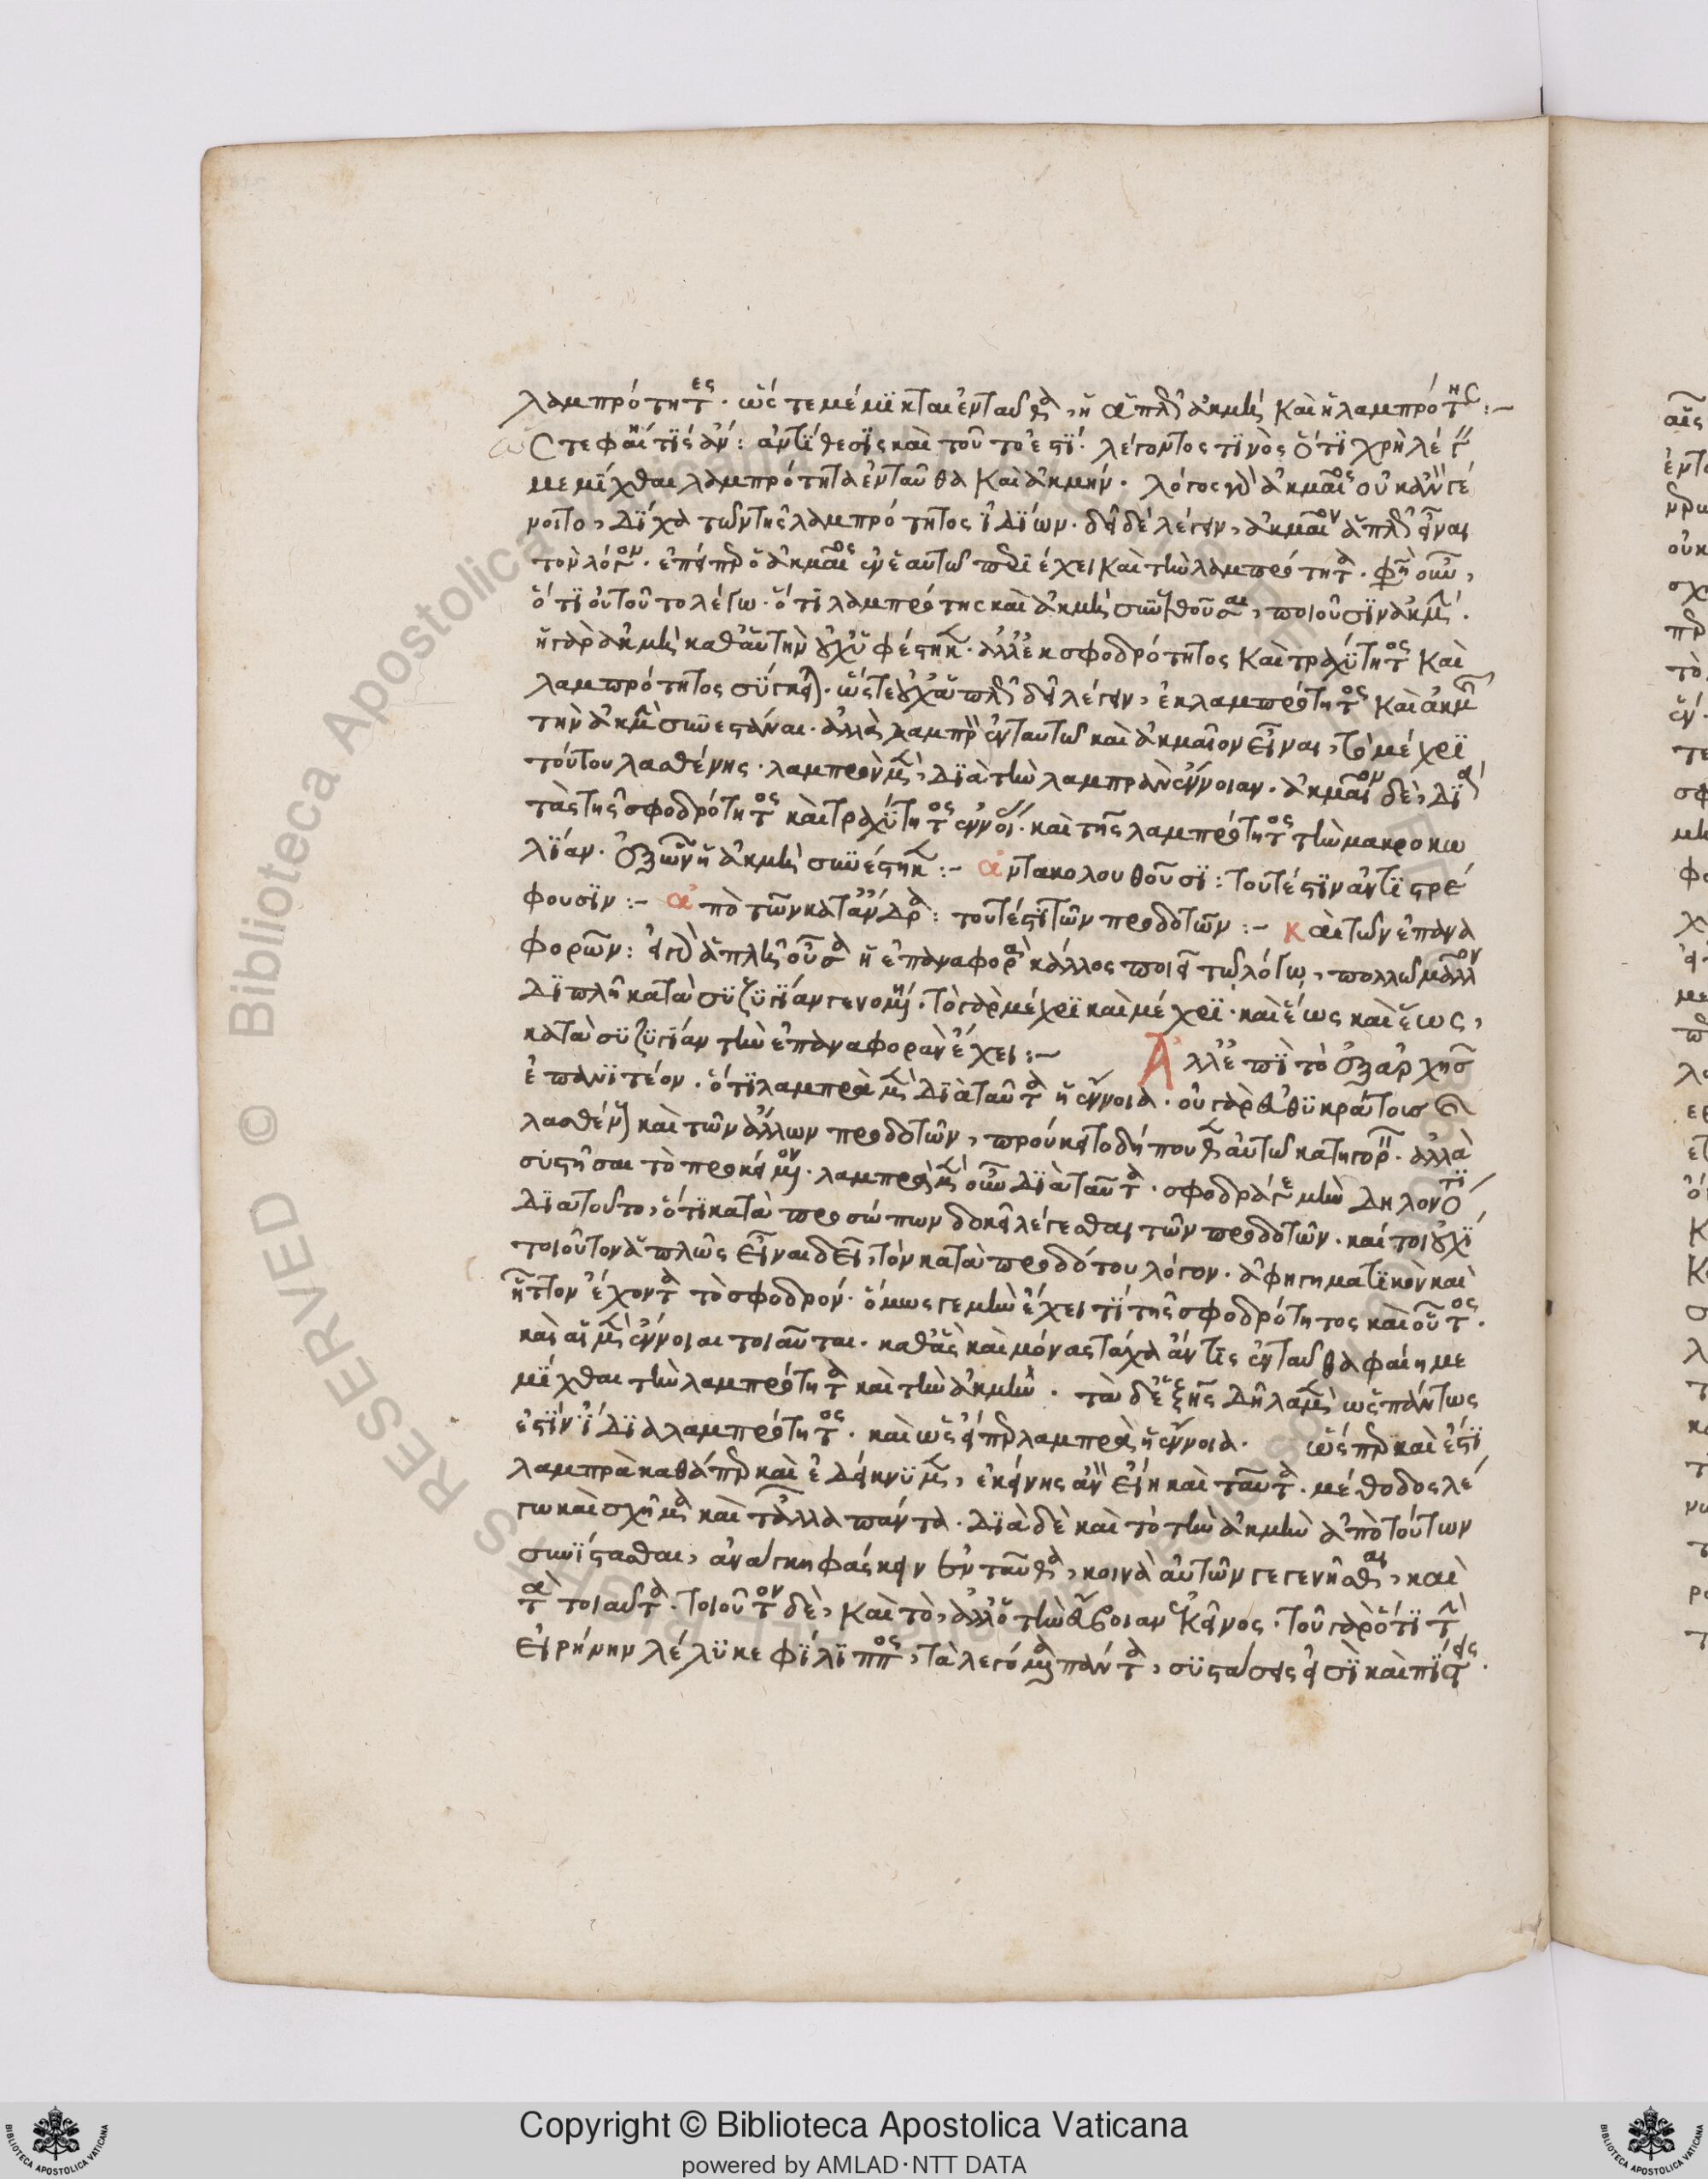 λαμπρότητες· ὥστε μέμικται ἐνταῦθα, ἡ ἁπλῆ ἀκμὴ καὶ ἡ λαμπρότης :-
ὥστε φαίη τὶς ἄν : ἀντίθεσις καὶ τοῦτο ἐστί· λέγοντος τινὸς ὅτι χρὴ λέγειν
μεμίχθαι λαμπρότητα ἐνταῦθα καὶ ἀκμήν· λόγος γὰρ ἀκμαῖος οὐκ ἂν γέ
νοιτο, δίχα τῶν τῆς λαμπρότητος ἰδίων· δεῖ δὲ λέγειν, ἀκμαῖον ἁπλῶς εἶναι
τὸν λόγον· ἐπείπερ ὁ ἀκμαῖος ἐν ἑαυτῶ περιέχει καὶ τὴν λαμπρότητα· φησὶν οὖν,
ὅτι οὐ τοῦτο λέγω· ὅτι λαμπρότης καὶ ἀκμὴ συνελθοῦσαι, ποιοῦσιν ἀκμήν·
ἡ γὰρ ἀκμὴ καθ' αὑτὴν οὐχ ὑφέστηκεν· ἀλλ' ἐκ σφοδρότητος καὶ τραχύτητος καὶ
λαμπρότητος σύγκειται· ὥστε οὐχ ἁπλῶς δεῖ λέγειν, ἐκ λαμπρότητος καὶ ἀκμῆς
τὴν ἀκμὴν συνεστάναι· ἀλλὰ λαμπρὸν ἐν ταυτῶ καὶ ἀκμαῖον εἶναι, τὸ μέχρι
τούτου λασθένης· λαμπρὸν μὲν, διὰ τὴν λαμπρὰν ἔννοιαν· ἀκμαῖον δὲ, διὰ
τὰς τῆς σφοδρότητος καὶ τραχύτητος ἐννοίας· καὶ τῆς λαμπρότητος τὴν μακροκω
λίαν· ἐξ ὧν ἡ ἀκμὴ συνέστηκεν :- ἀντακολουθοῦσι : τουτέστιν ἀντιστρέ
φουσιν :- ἀπὸ τῶν κατ' ἄνδρα : τουτέστι τῶν προδοτῶν :- καὶ τῶν ἐπανα
φορῶν : εἰ γὰρ ἁπλῆ οὖσα ἡ ἐπαναφορὰ κάλλος ποιεῖ τῶ λόγω, πολλῶ μᾶλλον
διπλῆ κατὰ συζυγίαν γενομένη· τὸ γὰρ μέχρι καὶ μέχρι· καὶ ἕως καὶ ἕως,
κατὰ συζυγίαν τὴν ἐπαναφορὰν ἔχει :- Ἀλλ' ἐπὶ τὸ ἐξαρχῆς
ἐπανιτέον· ὅτι λαμπρὰ μὲν διὰ ταῦτα ἡ ἔννοια· οὐ γὰρ εὐθυκράτους καὶ
λασθένους καὶ τῶν ἄλλων προδοτῶν, προύκειτο δήπουθεν αὐτῶ κατηγορεῖν· ἀλλὰ
συστῆσαι τὸ προκείμενον· λαμπρὰ μὲν οὖν διὰ ταῦτα· σφοδρά γε μὴν δηλονότι
διὰ τοῦτο, ὅτι κατὰ προσώπων δοκεῖ λέγεσθαι τῶν προδοτῶν· καίτοι οὐχὶ
τοιοῦτον ἁπλῶς εἶναι δεῖ, τὸν κατὰ προδότου λόγον· ἀφηγηματικὸν καὶ
ἧττον ἔχοντα τὸ σφοδρόν· ὅμως γε μὴν ἔχει τί τῆς σφοδρότητος καὶ οὗτος·
καὶ αἱ μὲν ἔννοιαι τοιαῦται· καθ' ἃς καὶ μόνας τάχα ἄν τις ἐνταῦθα φαίη με
μίχθαι τὴν λαμπρότητα καὶ τὴν ἀκμὴν· τὰ δ' ἑξῆς δῆλα μὲν ὡς πάντως
ἐστὶν ἴδια λαμπρότητος· καὶ ὡς εἴπερ λαμπρὰ ἡ ἔννοια· ὥσπερ καὶ ἔστι
λαμπρὰ καθάπερ καὶ ἐδείκνυμεν, ἐκείνης ἂν εἴη καὶ ταῦτα· μέθοδος λέ
γω καὶ σχῆμα καὶ τἆλλα πάντα· διὰ δὲ καὶ τὸ τὴν ἀκμὴν ἀπὸ τούτων
συνίστασθαι, ἀνάγκη φάσκειν ἐνταῦθα, κοινὰ αὐτῶν γεγενῆσθαι, καὶ
τὰ τοιαῦτα· τοιοῦτον δὲ, καὶ τὸ, ἀλλ' ὁ τὴν εὔβοιαν ἐκεῖνος· τοῦ γὰρ ὅτι τὴν
εἰρήνην λέλυκε φίλιππος, τὰ λεγόμενα πάντα, συστάσεις εἰσὶ καὶ πίστεις·
Copyright © Biblioteca Apostolica Vaticana
powered by AMLAD·NTT DATA